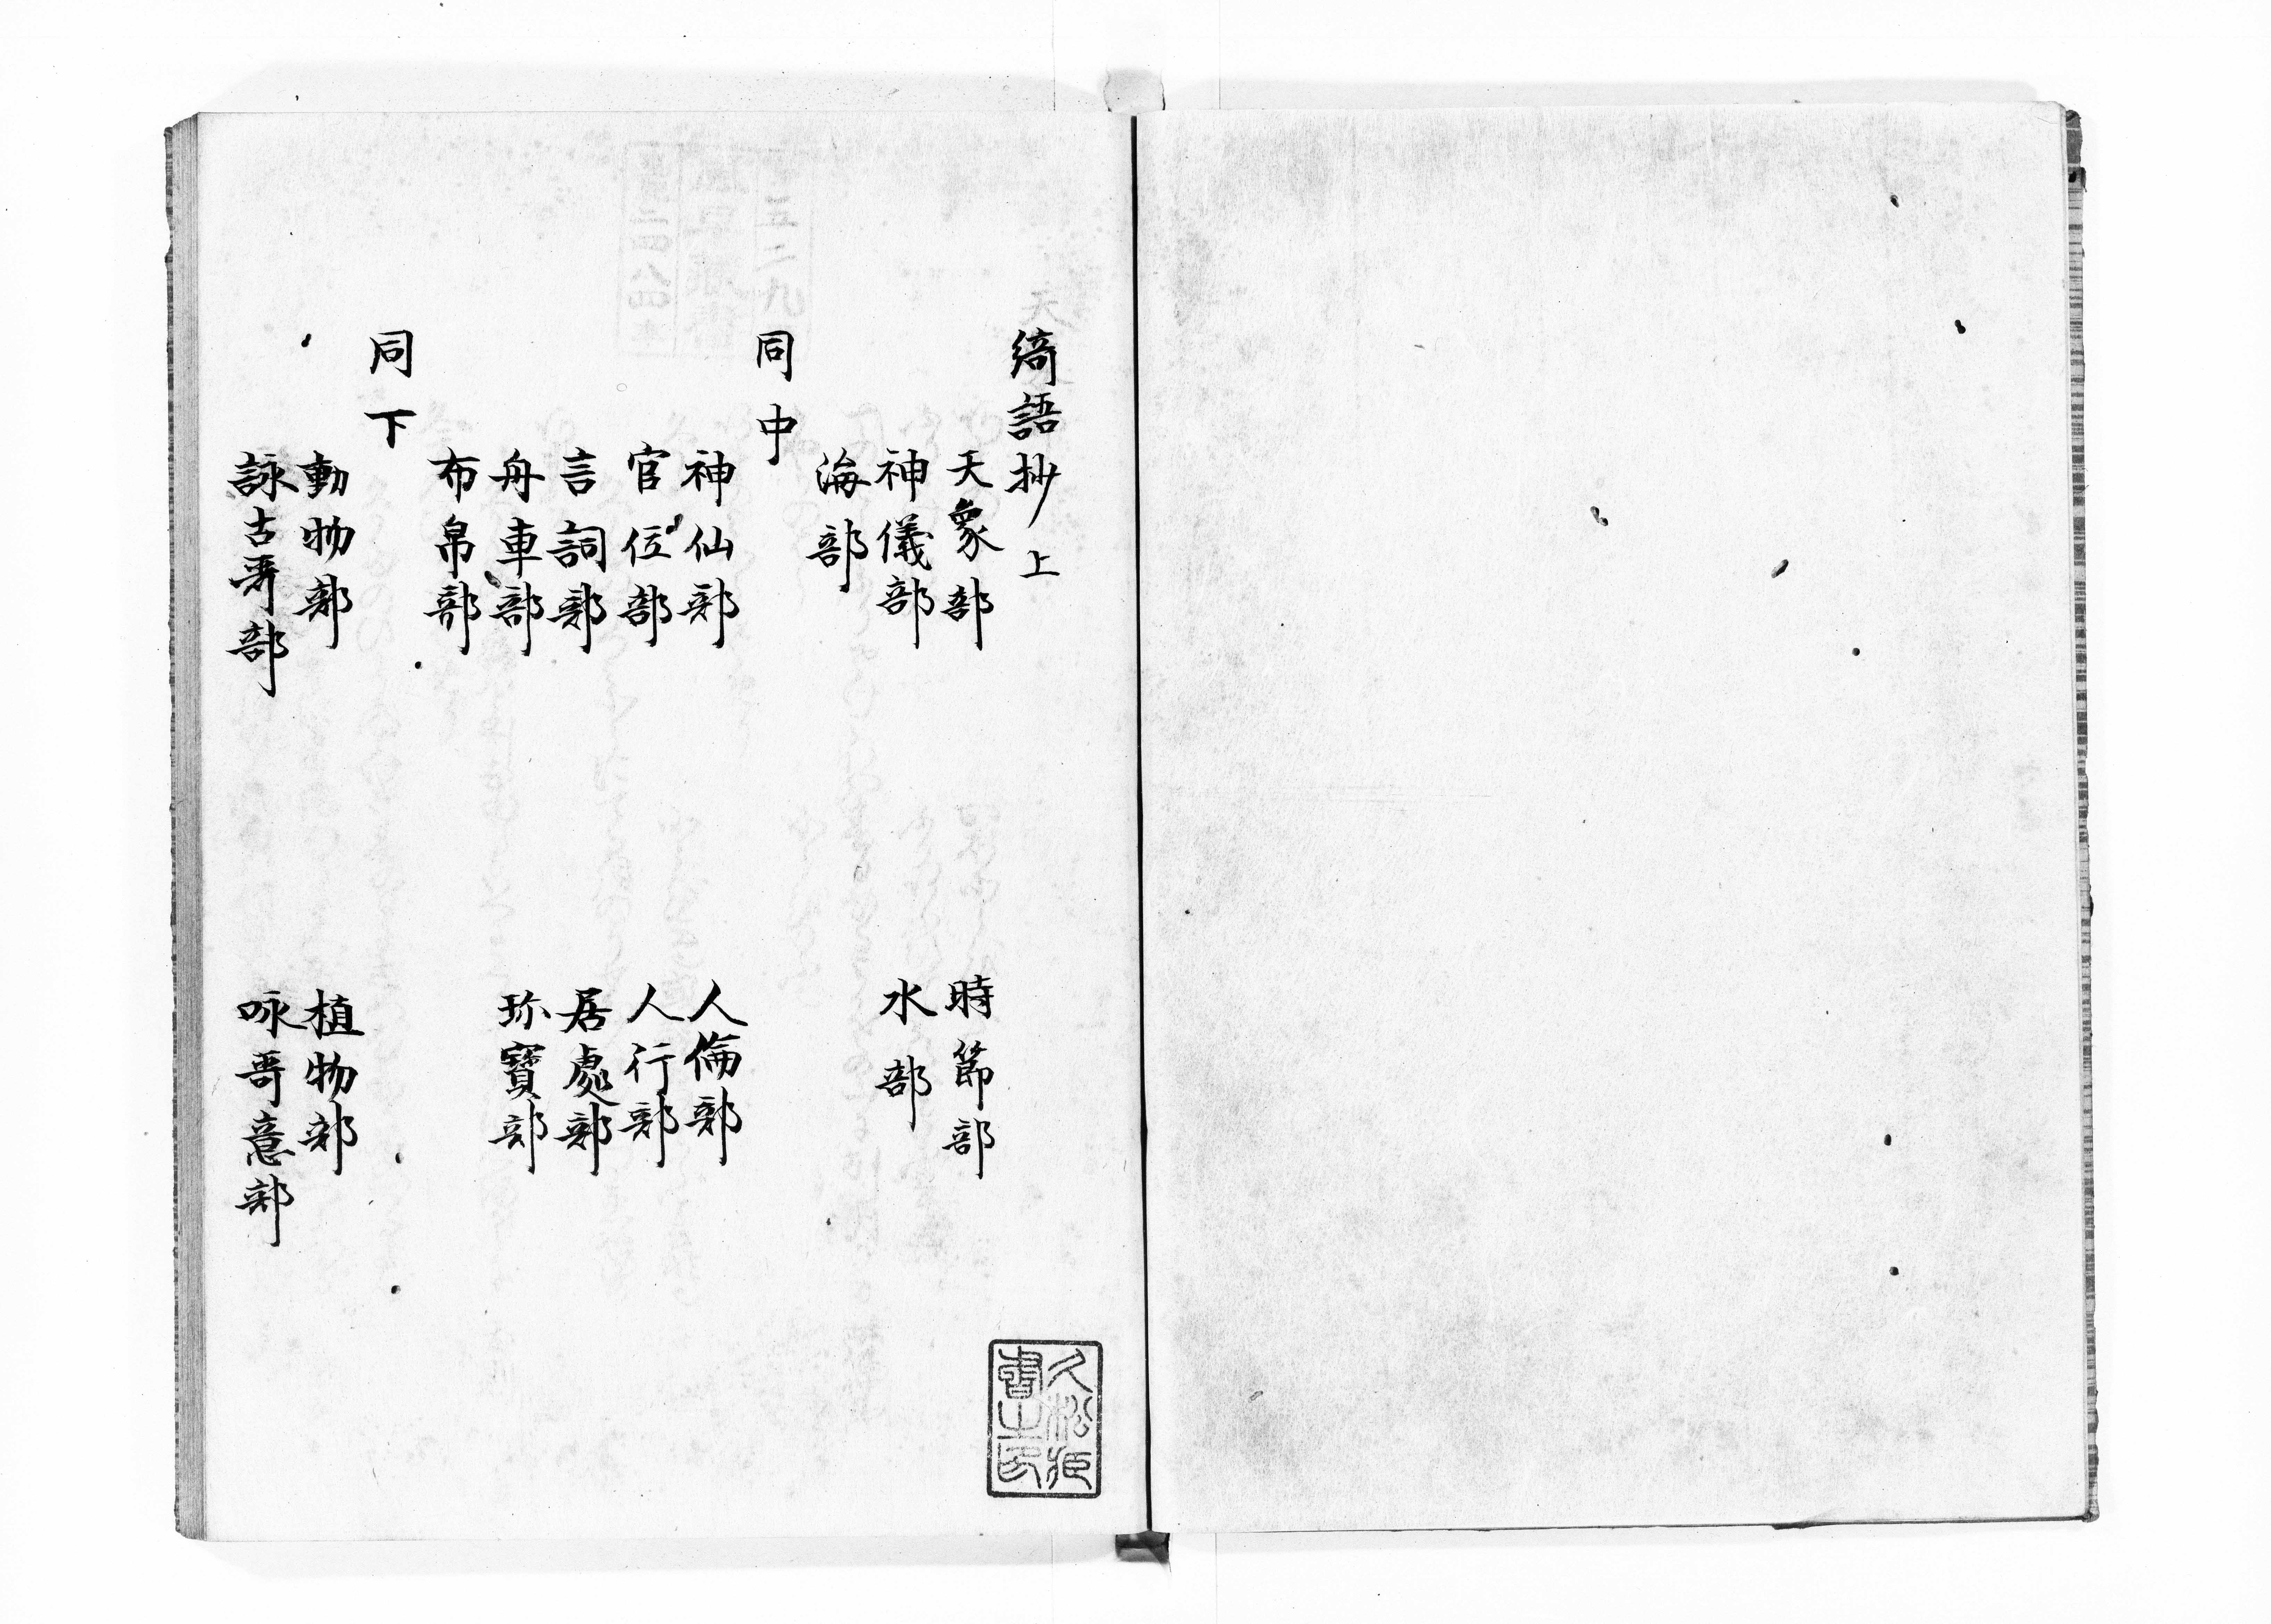 綺語抄上
天象部　時節部
神儀部　水部
海部
同中
神仙部　人倫部
官位部　人行部
言詞部　居處部
舟車部　珎寳部
布帛部
同下
動物部　植物部
詠古哥部　咏哥意部